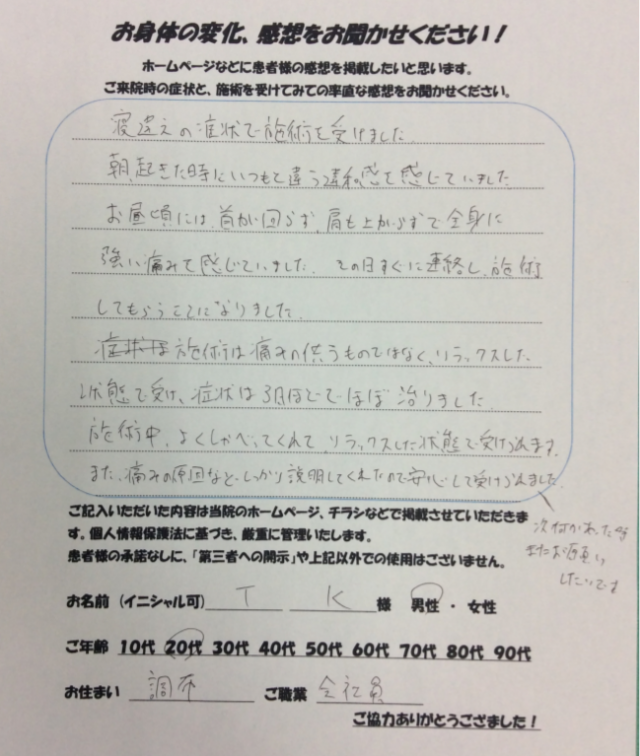 お身体の変化、感想をお聞かせください！
ホームページなどに患者様の感想を掲載したいと思います。
ご来院時の症状と、施術を受けてみての率直な感想をお聞かせください。
寝違えの症状で施術を受けました。
朝、起きた時にいつもと違う違和感を感じていました。
お昼頃には、首が回らず、肩も上がらずで全身に
強い痛みで感じていました。その日すぐに連絡し、施術
してもらうことになりました。
施術は痛みの伴うものではなく、リラックスした
状態で受け、症状は3日ほどでほぼ治りました。
施術中、よくしゃべってくれて、リラックスした状態で受けられます。
また、痛みの原因など、しっかり説明してくれたので安心して受けられました。
次何かあった時
またお願い
したいです
ご記入いただいた内容は当院のホームページ、チラシなどで掲載させていただきま
す。個人情報保護法に基づき、厳重に管理いたします。
患者様の承諾なしに、「第三者への開示」や上記以外での使用はございません。
お名前（イニシャル可） T K 様 男性 ・ 女性
ご年齢 10代 20代 30代 40代 50代 60代 70代 80代 90代
お住まい 調布 ご職業 会社員
ご協力ありがとうござました！